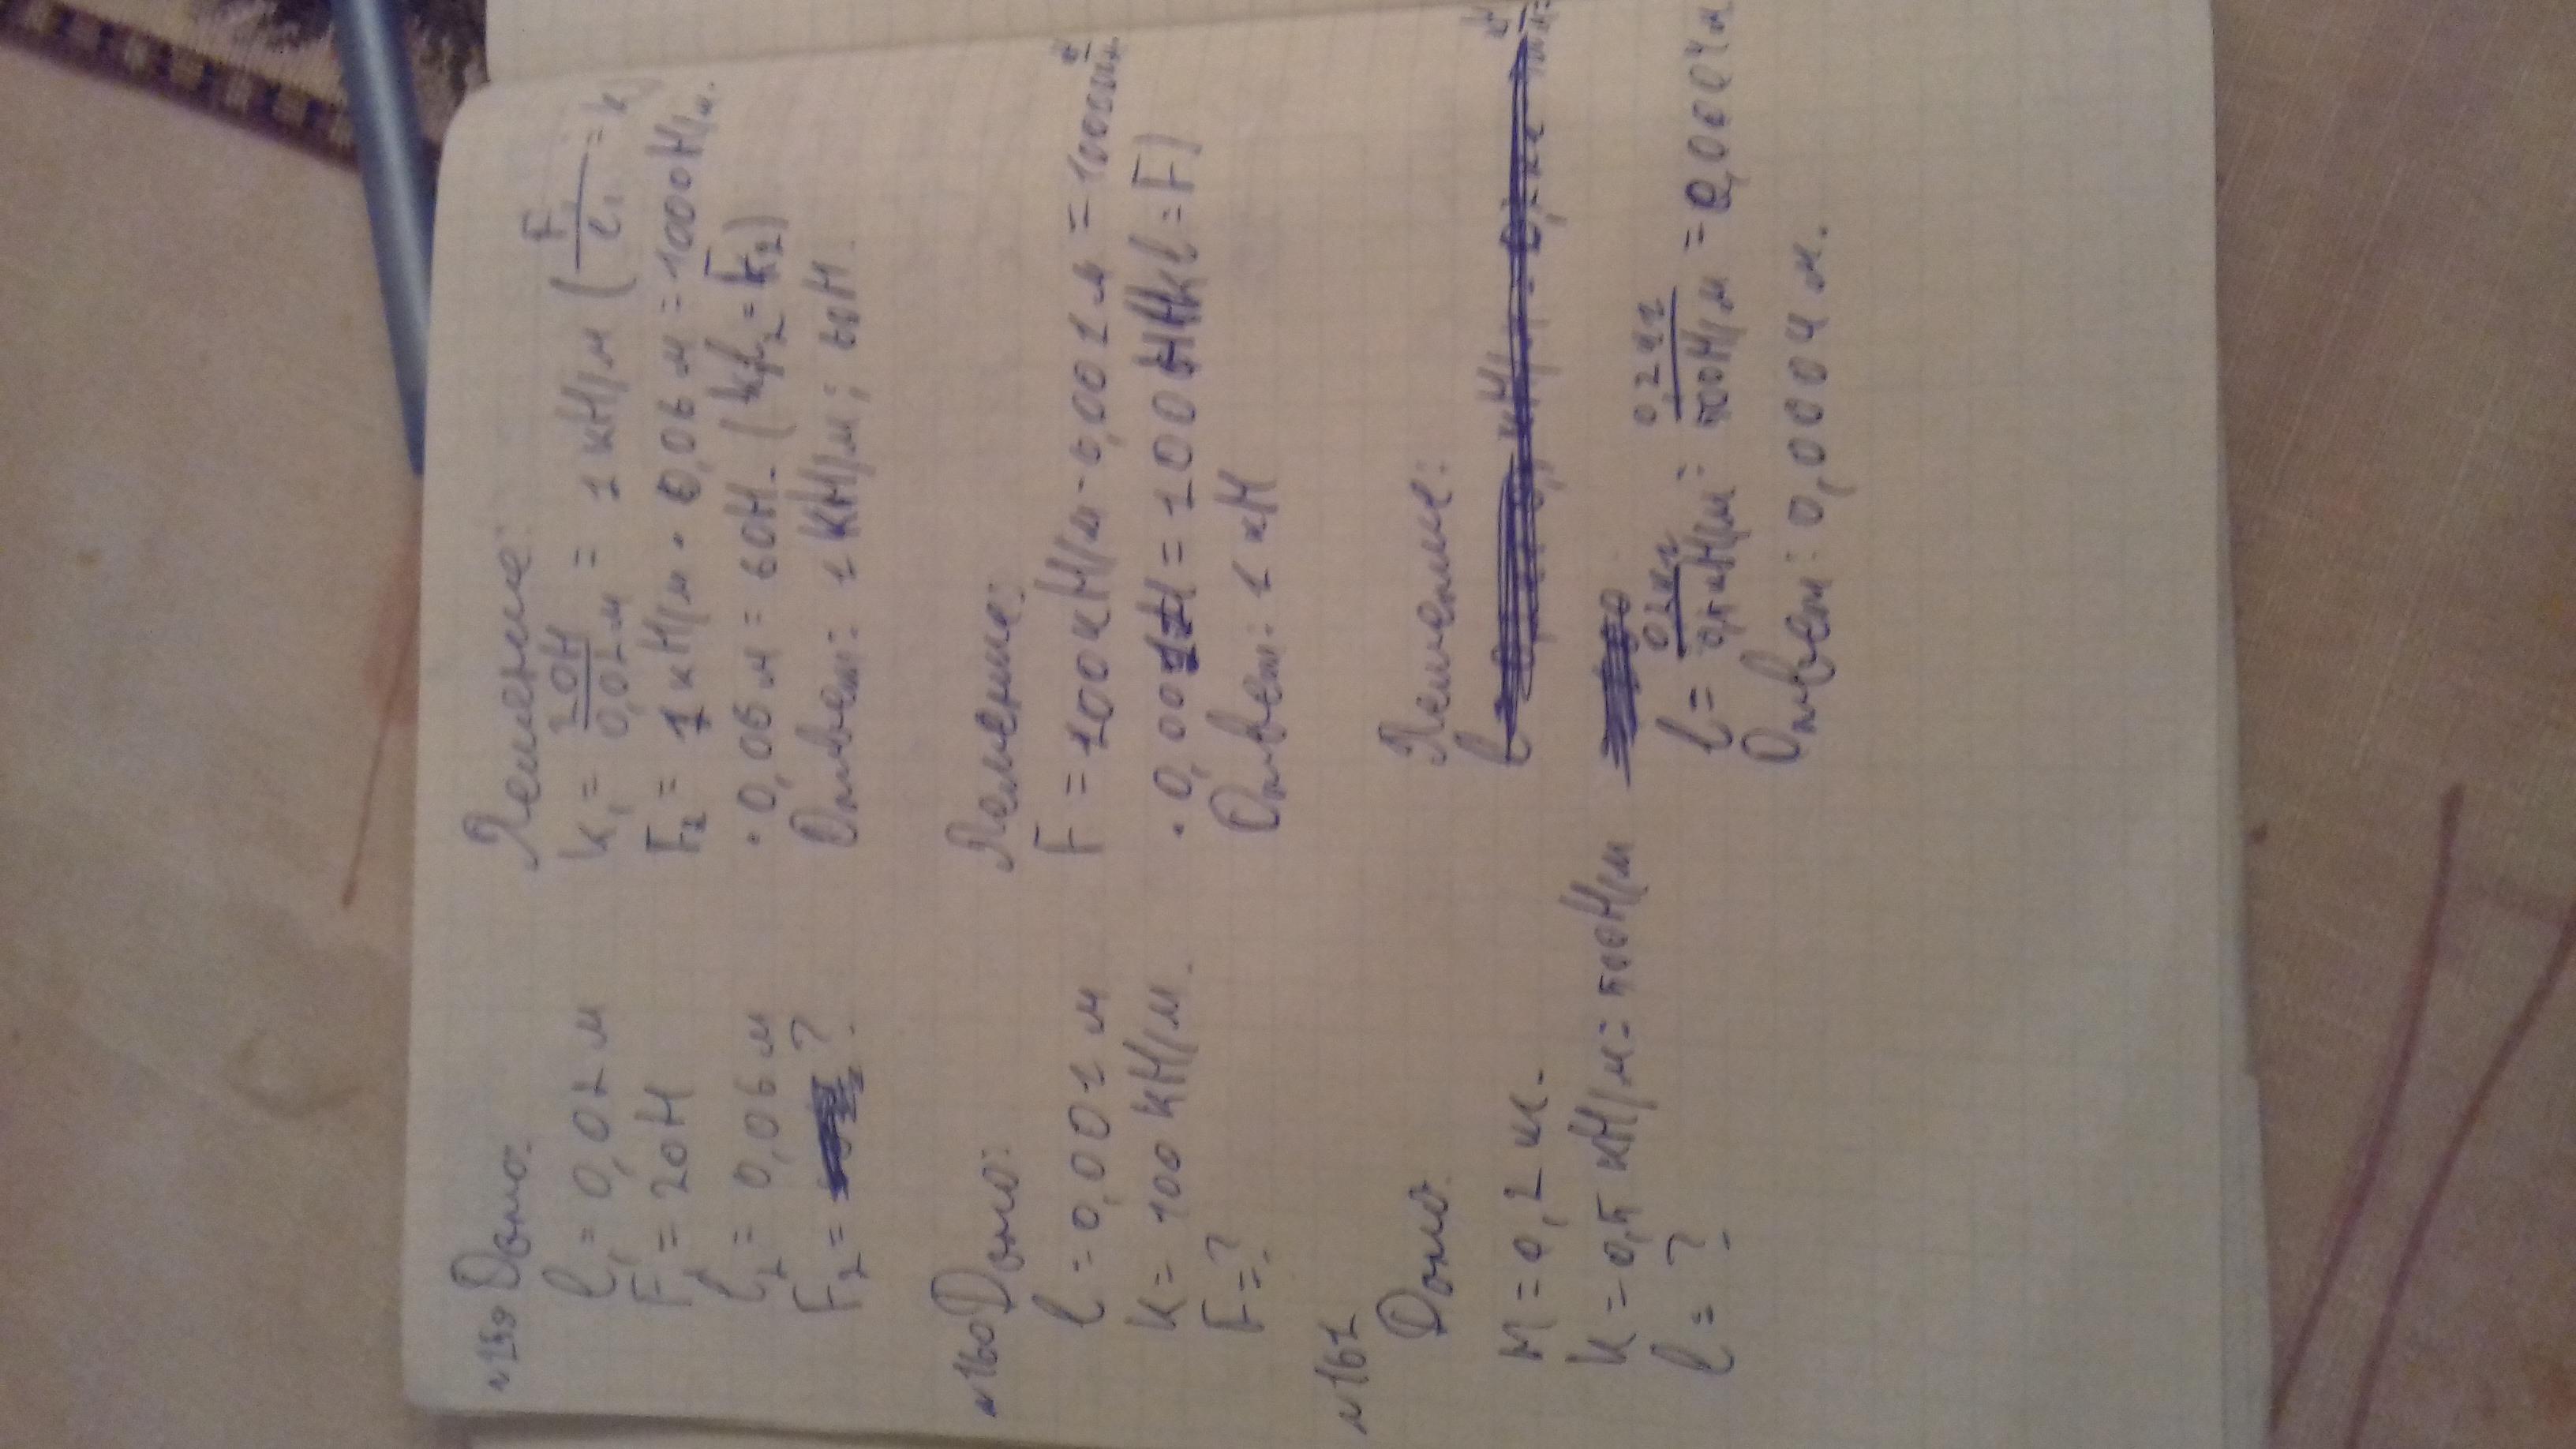 №159 Дано:
l₁ = 0,02 м
F₁ = 20Н
l₂ = 0,06 м
F₂ = ?
Решение:
k₁ = 20Н/0,02м = 1 кН/м (F₁/l₁ = k)
F₂ = 1 кН/м · 0,06 м = 1000Н/м ·
· 0,06 м = 60Н. (kl₂ = F₂)
Ответ: 1 кН/м; 60Н.
№160 Дано:
l = 0,001 м
k = 100 кН/м.
F = ?
Решение:
F = 100 кН/м · 0,001 м = 100000
· 0,001 = 100 (kl = F)
Ответ: 1 кН
№161
Дано:
М = 0,2 кг.
k = 0,5 кН/м = 500Н/м
l = ?
Решение:
l
l = 0,2кг/0,5кН/м = 0,2кг/500Н/м = 0,0004м
Ответ: 0,0004 м.